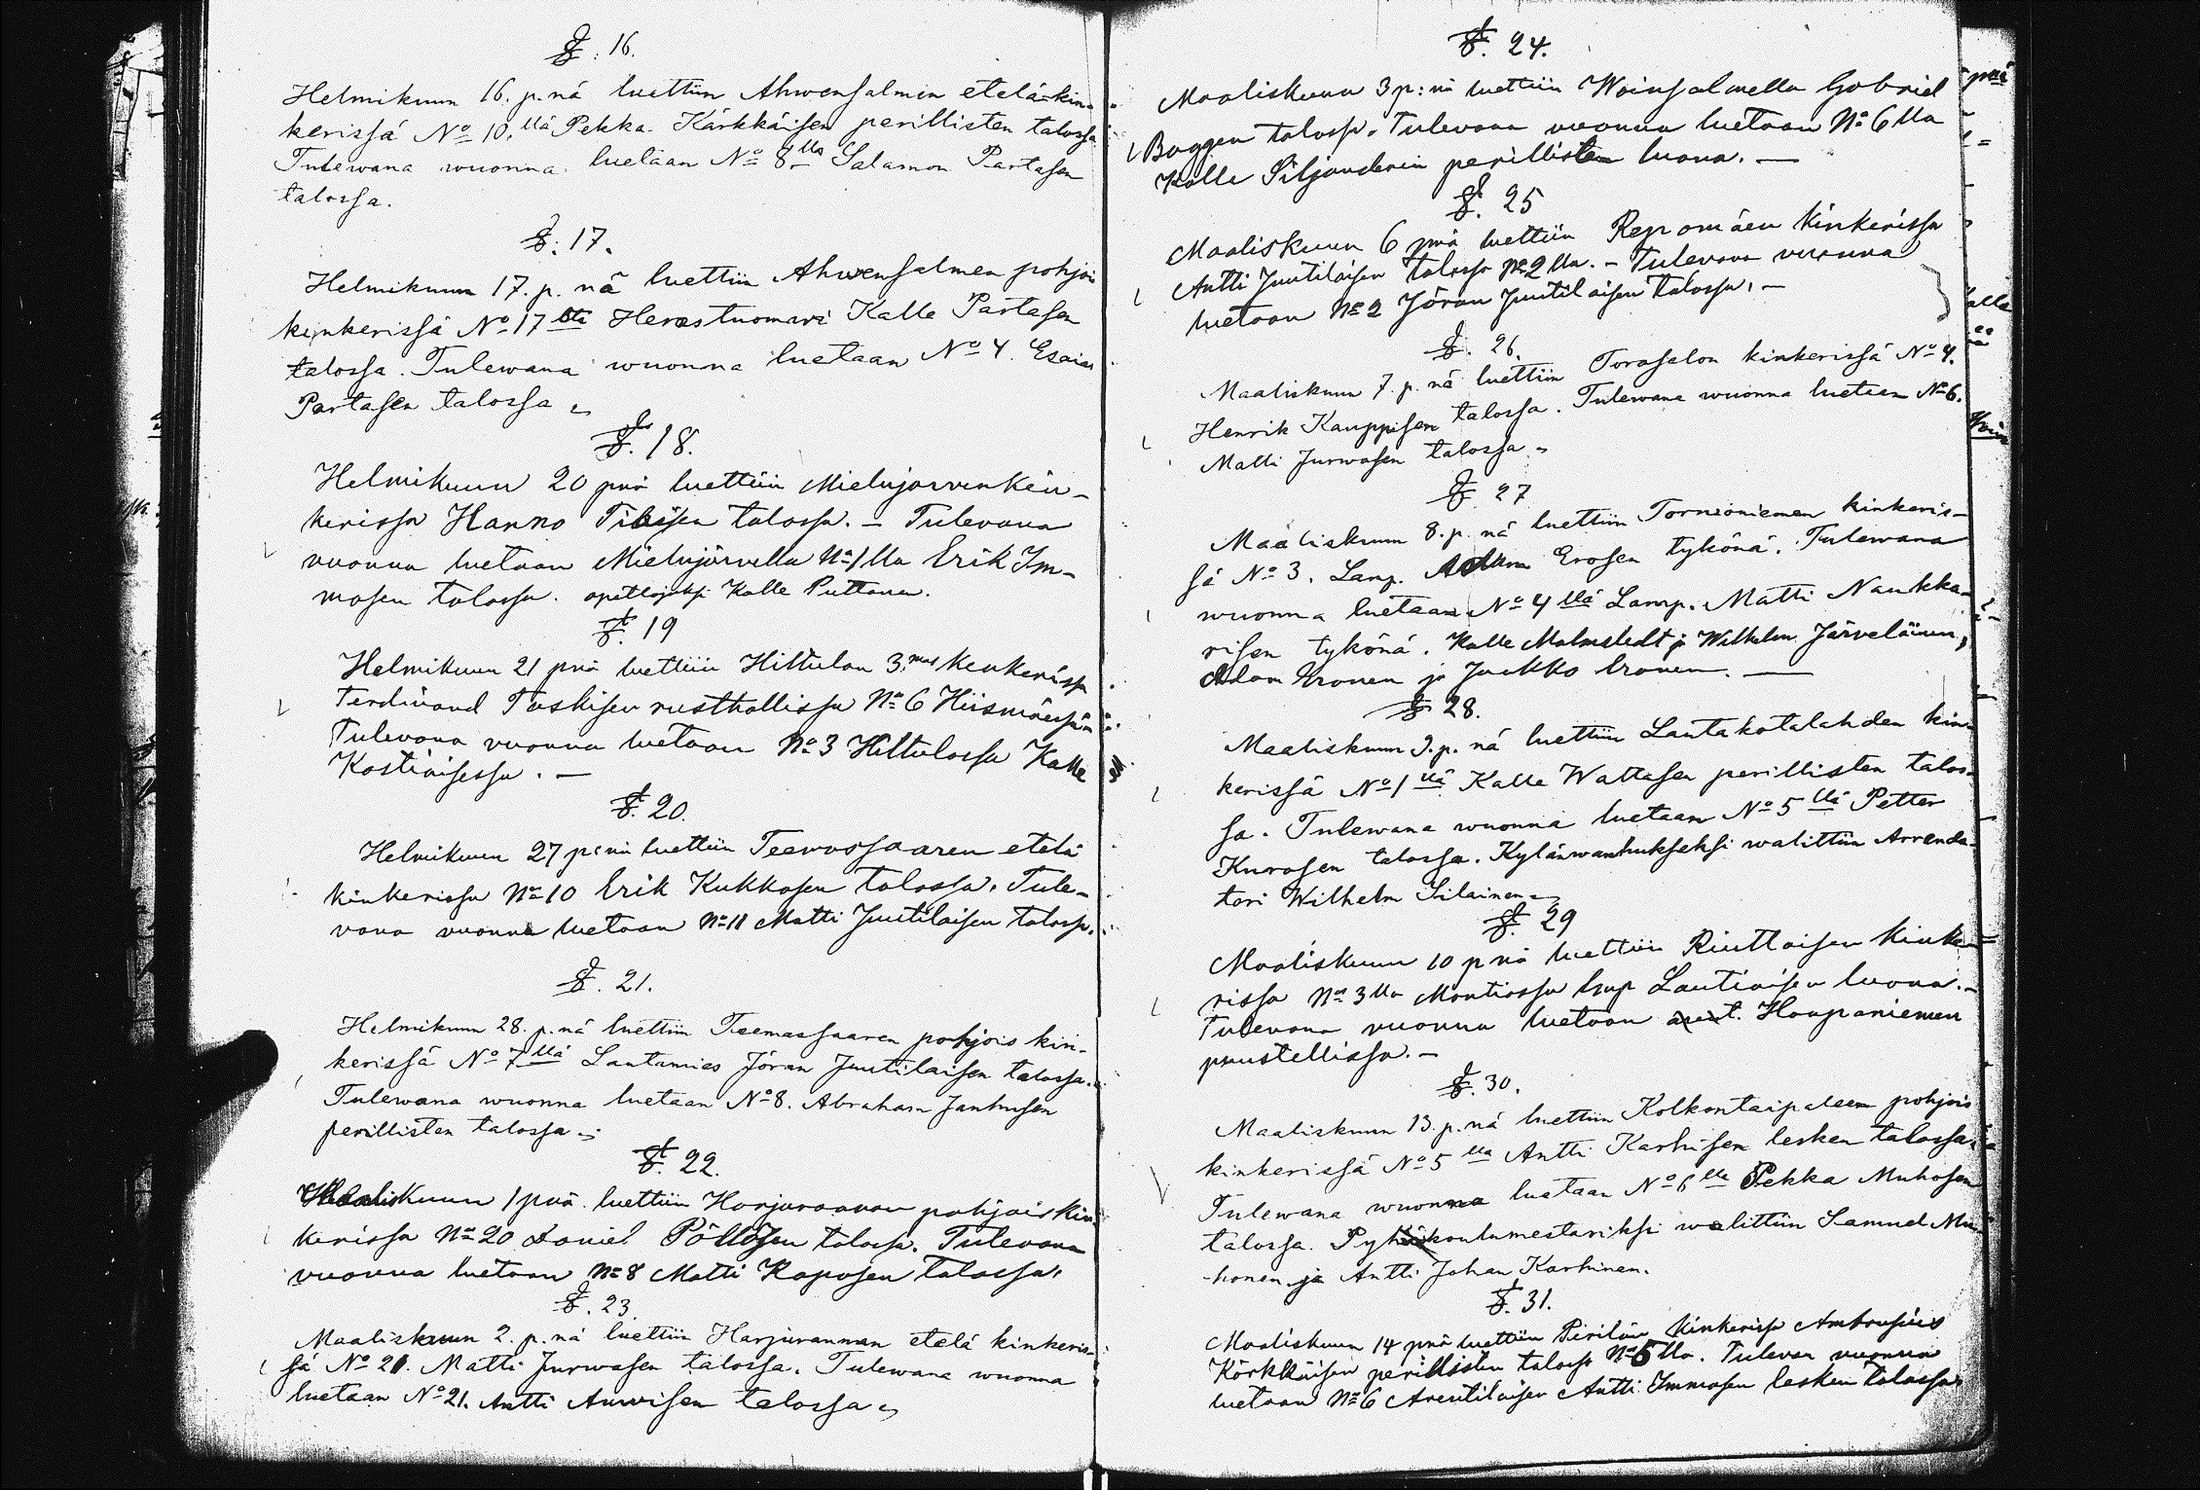 §. 16.
Helmikuun 16. p. nä luettiin Ahwensalmen etelä-kin-
kerissä No 10.llä Pekka Kärkkäisen perillisten talossa
Tulewana wuonna luetaan No 8lla Salamon Partasen
talossa.
§. 17.
Helmikuun 17. p. nä luettiin Ahwensalmen pohjois
kinkerissä No 17 Herastuomari Kalle Partasen
talossa. Tulewana wuonna luetaan No 4. Esaias
Partasen talossa
§. 18.
Helmikuun 20 pnä luettiin Mielujärven kin-
kerissa Hanno talossa. – Tulevana
vuonna luetaan Mielujärvella No 1 lla Erik Im-
mosen talossa. Kalle Puttonen.
§. 19
Helmikuun 21 pnä luettiin Hiltulan kinkerissa
Ferdinand Taskisen rusthollissa No 6
Tulevana vuonna luetaan No 3 Hiltulassa Kalle
Kostiaisessa. –
§. 20.
Helmikuun 27 p:nä luettiin Teemassaaren etelä
kinkerissa No 10 Erik Kukkosen talossa. Tule-
vana vuonna luetaan No 11 Matti Juutilaisen talossa.
§. 21.
Helmikuun 28. p. nä luettiin Teemassaaren pohjois kin-
kerissä No 7 llä Lautamies Jöran Juutilaisen talossa.
Tulewana wuonna luetaan No 8. Abraham Janhusen
perillisten talossa
§. 22.
Maaliskuun 1 pnä luettiin Harjurannan pohjois kin
kerissa No 20 Daniel Pöllösen talossa. Tulevana
vuonna luetaan No 8 Matti Kaposen talossa.
§. 23
Maaliskuun 2. p. nä luettiin Harjurannan etelä kinkeris-
sä No 20. Matti Jurwasen talossa. Tulewana wuonna
luetaan No 21. Antti Auwisen talossa
§. 24.
Maaliskuun 3 p:nä luettiin Woinsalmella Gabriel
Baggen talossa. Tulevana vuonna luetaan No 6 lla
Kalle Siljanderin perillisten luona. —
§. 25
Maaliskuun 6 pnä luettiin Repomäen kinkerissa
Antti Juutilaisen talossa No 2 lla. – Tulevana vuonna
luetaan No 2 Jöran Juutilaisen talossa. –
§. 26.
Maaliskuun 7. p. nä luettiin Torasalon kinkerissä No 4.
Henrik Kauppisen talossa. Tulewana wuonna luetaan No 6.
Matti Jurwasen talossa
§ 27
Maaliskuun 8. p. nä luettiin Tornioniemen kinkeris-
sä No 3. Lamp. Adam Erosen tykönä. Tulewana
wuonna luetaan No 4 llä Lamp. Matti Naukka-
risen tykönä. Kalle Malmstedt ja Wilhelm Järveläinen,
Adam Eronen ja Jaakko Eronen. —
§ 28.
Maaliskuun 9. p. nä luettiin Lantakotalahden kin-
kerissä No 1 llä Kalle Wattasen perillisten talos-
sa. Tulewana wuonna luetaan No 5 llä Petter
Kurosen talossa. Kylänwanhukseksi walittiin Arrenda-
tori Wilhelm Silainen
§. 29
Maaliskuun 10 pnä luettiin Riuttaisen kinke-
rissa No 3 lla lamp Lautiaisen luona. –
Tulevana vuonna luetaan Haapaniemen
puustellissa. –
§. 30.
Maaliskuun 13. p. nä luettiin Kolkontaipaleen pohjois
kinkerissä No 5 lla Antti Karhisen lesken talossa.
Tulewana wuonna luetaan No 6 lla Pekka Muhosen
talossa. Pyhäkoulumestariksi walittiin Samuel Mu-
-honen ja Antti Johan Karhinen.
§. 31.
Maaliskuun 14 pnä luettiin Pirilän kinkerissa Ambrosius
Kärkkäisen perillisten talossa No 5 lla. Tulevan vuonna
luetaan No 6 Antti Immosen lesken talossa